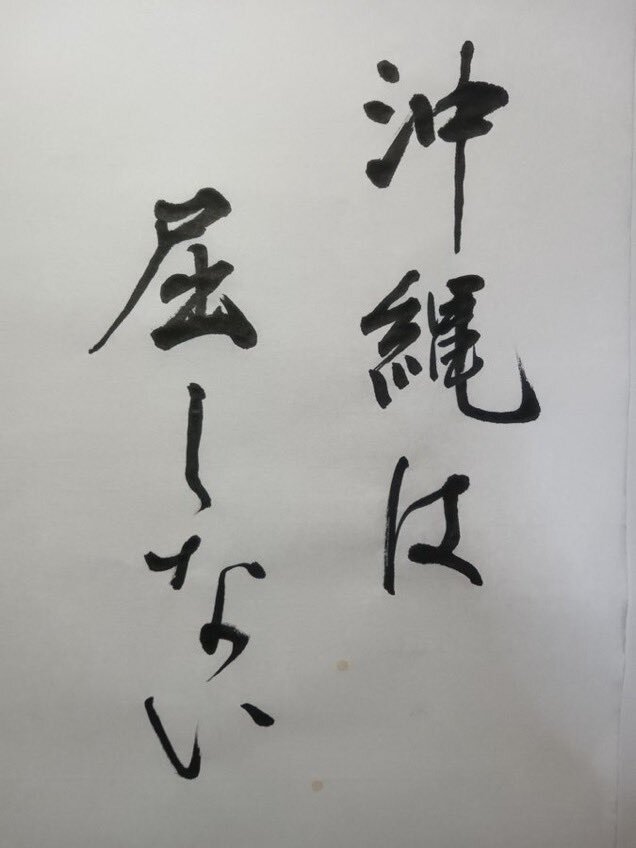 沖縄は
屈しない